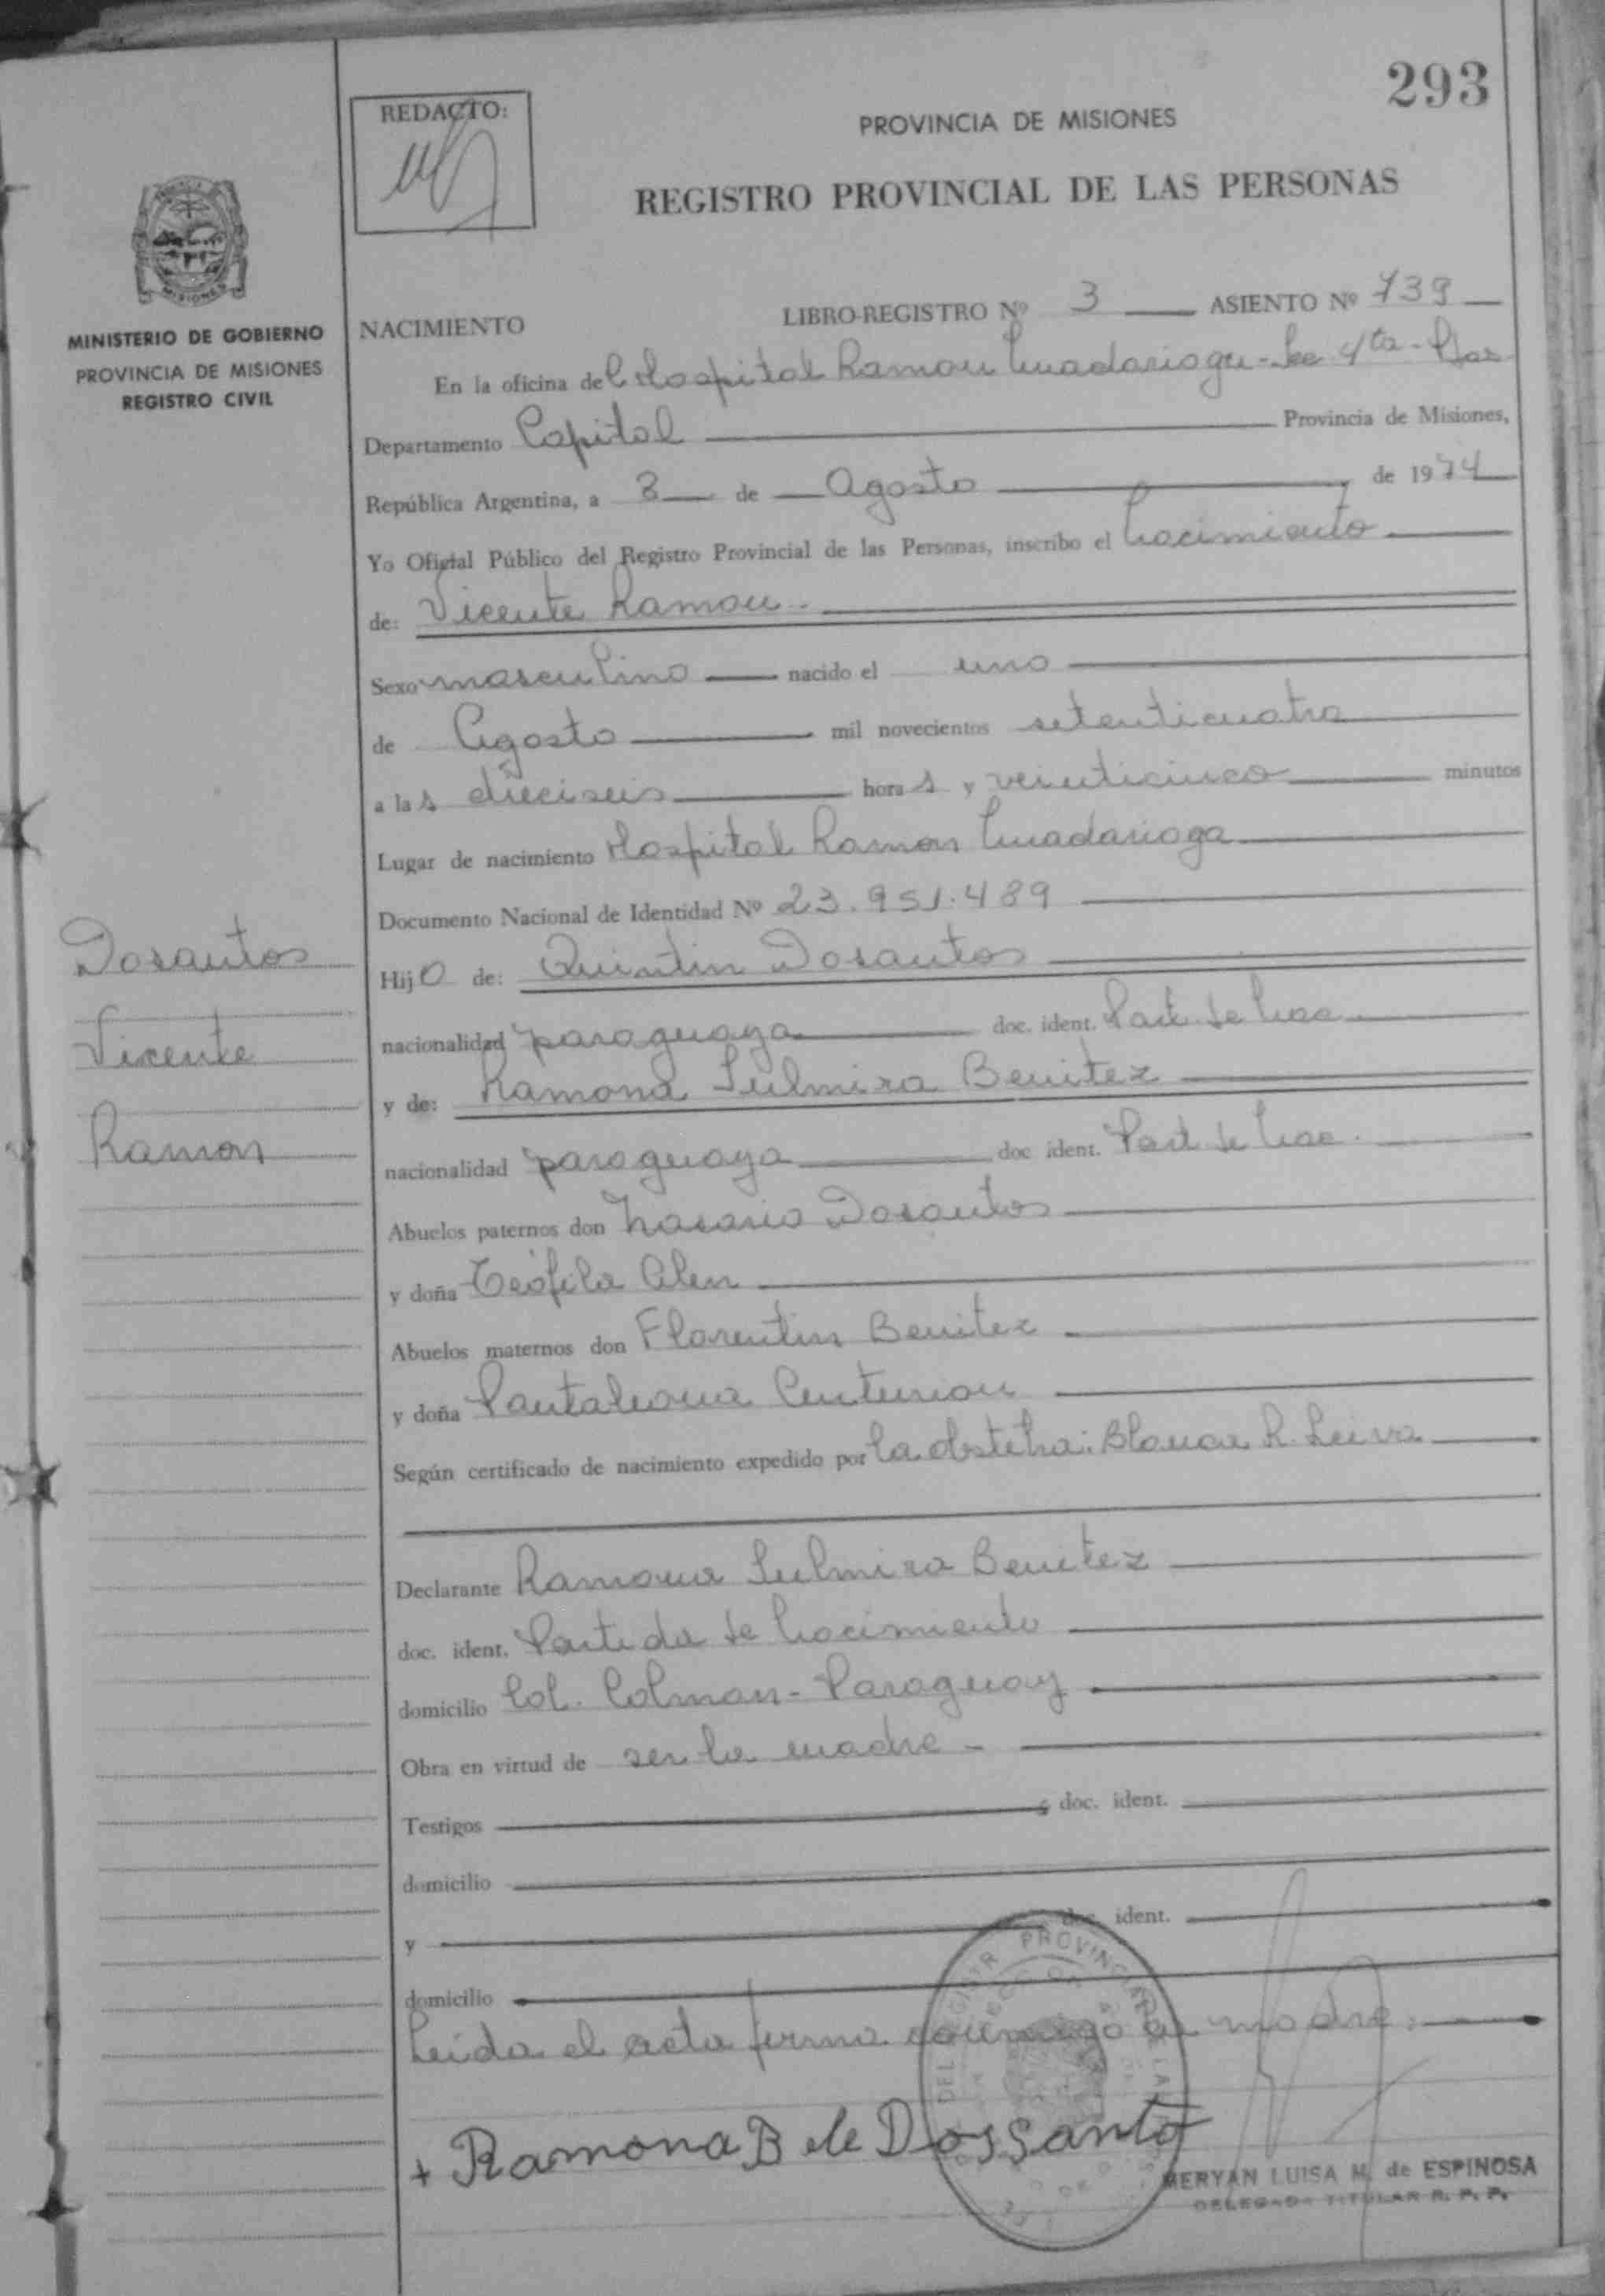 293
REDACTO:
PROVINCIA DE MISIONES
REGISTRO PROVINCIAL DE LAS PERSONAS
MISIONES
MINISTERIO DE GOBIERNO
PROVINCIA DE MISIONES
REGISTRO CIVIL
NACIMIENTO
LIBRO-REGISTRO Nº 3 ASIENTO Nº 739
En la oficina del Hospital Ramon Madariaga - Sec 4ta - Pdas
Departamento Capital Provincia de Misiones,
República Argentina, a 3 de Agosto de 1974
Yo Oficial Público del Registro Provincial de las Personas, inscribo el Nacimiento
de: Vicente Ramon.-
Sexo masculino nacido el uno
de Agosto mil novecientos setenticuatro
a las dieciseis horas y veinticinco minutos
Lugar de nacimiento Hospital Ramon Madariaga
Documento Nacional de Identidad Nº 23.951.489
Dosantos
Hijo de: Quintin Dosantos
nacionalidad paraguaya doc. ident. Part. de Nac.
Vicente
y de: Ramona Sulmira Benitez
Ramon
nacionalidad paraguaya doc ident. Part de Nac.
Abuelos paternos don Nasario Dosantos
y doña Teófila Alen
Abuelos maternos don Florentin Benitez
y doña Pantaleona Centurion
Según certificado de nacimiento expedido por la obstetra: Blanca R. Leiva
Declarante Ramona Sulmira Benitez
doc. ident. Partida de Nacimiento
domicilio Col. Colman - Paraguay
Obra en virtud de ser la madre -
Testigos ; doc. ident.
domicilio
y doc. ident.
domicilio
Leida el acta firma conmigo la madre.
+ Ramona B de Dossanto
MERYAN LUISA M. de ESPINOSA
DELEGADA TITULAR R. P. P.